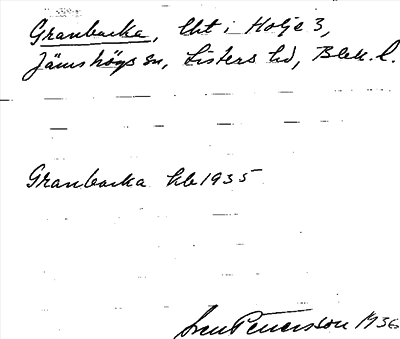 Granbacka, lht i Holje 3,
Jämshögs sn, Listers hd, Blek. l.
Granbacka hb 1935
Sven Petersson 1936